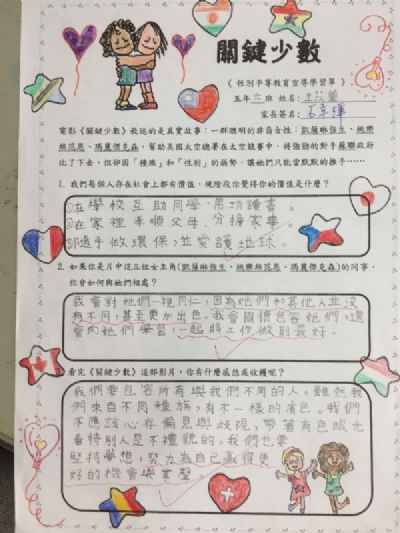 關鍵少數
( 性別平等教育宣導學習單 )
五年六班 姓名:
家長簽名:
電影《關鍵少數》敘述的是真實故事:一群聰明的非裔女性:凱薩琳強生、桃樂
絲范恩、瑪麗傑克森,幫助美國太空總署在太空競賽中,將強勁的對手蘇聯政府
比了下去,但卻因「種族」和「性別」的弱勢,讓她們只能當默默的推手……
1. 我們每個人存在社會上都有價值,現階段你覺得你的價值是什麼?
在學校互助同學、用功讀書。
在家裡孝順父母、分擔家事。
隨手做環保,並愛護地球。
2. 如果你是片中這三位女主角(凱薩琳強生、桃樂絲范恩、瑪麗傑克森)的同事,
你會如何與她們相處?
我會對她們一視同仁,因為她們和其他人並沒
有不同,甚至更加出色。我會同理包容她們,還
會向她們學習,一起將工作做到最好。
看完《關鍵少數》這部影片,你有什麼感想或收穫呢?
我們要包容所有與我們不同的人。雖然我
們來自不同種族,有不一樣的膚色。我們
不應該心存偏見與歧視,帶著有色眼光
看待別人是不禮貌的,我們也要
堅持夢想,努力為自己贏得更
好的機會與掌聲